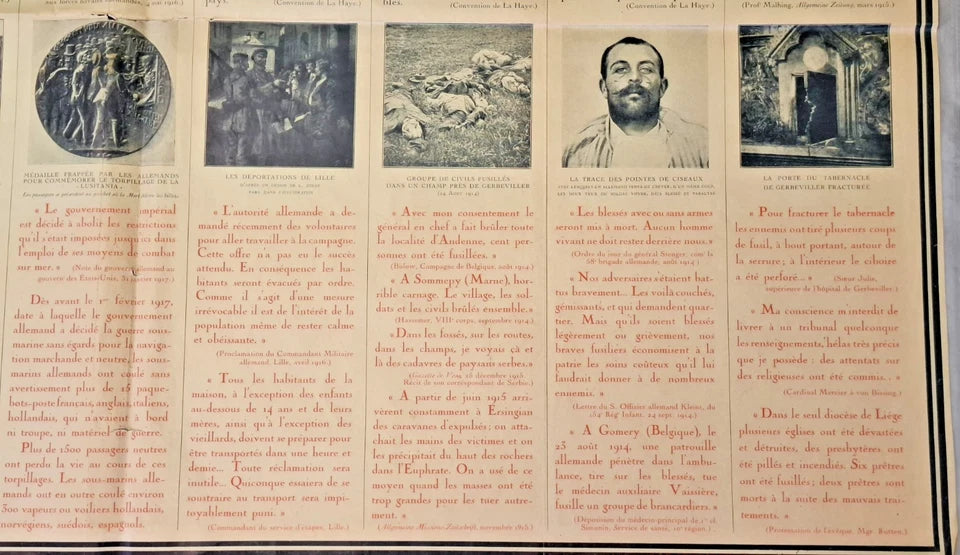 aux forces navales allemandes, 4 mai 1916.)
pays.
(Convention de La Haye.)
bles.
(Convention de La Haye.)
(Convention de La Haye.)
(Prof Malhing, Allgemeine Zeitung, mars 1915.)
MÉDAILLE FRAPPÉE PAR LES ALLEMANDS
POUR COMMÉMORER LE TORPILLAGE DE LA
« LUSITANIA »
« Le gouvernement impérial
est décidé à abolir les restrictions
qu'il s'était imposées jusqu'ici dans
l'emploi de ses moyens de combat
sur mer. » (Note du gouvern' allemand au
gouvern' des Etats-Unis, 31 janvier 1917.)
Dès avant le 1er février 1917,
date à laquelle le gouvernement
allemand a décidé la guerre sous-
marine sans égards pour la naviga-
tion marchande et neutre, les sous-
marins allemands ont coulé sans
avertissement plus de 15 paque-
bots-poste français, anglais, italiens,
hollandais, qui n'avaient à bord
ni troupe, ni matériel de guerre.
Plus de 1500 passagers neutres
ont perdu la vie au cours de ces
torpillages. Les sous-marins alle-
mands ont en outre coulé environ
300 vapeurs ou voiliers hollandais,
norvégiens, suédois, espagnols.
LES DÉPORTATIONS DE LILLE
D'APRÈS UN DESSIN DE L. JONAS
PARU DANS L'ILLUSTRATION
« L'autorité allemande a de-
mandé récemment des volontaires
pour aller travailler à la campagne.
Cette offre n'a pas eu le succès
attendu. En conséquence les ha-
bitants seront évacués par ordre.
Comme il s'agit d'une mesure
irrévocable il est de l'intérêt de la
population même de rester calme
et obéissante. »
(Proclamation du Commandant Militaire
allemand, Lille, avril 1916.)
« Tous les habitants de la
maison, à l'exception des enfants
au-dessous de 14 ans et de leurs
mères, ainsi qu'à l'exception des
vieillards, doivent se préparer pour
être transportés dans une heure et
demie... Toute réclamation sera
inutile... Quiconque essaiera de se
soustraire au transport sera impi-
toyablement puni. »
(Commandant du service d'étapes, Lille.)
GROUPE DE CIVILS FUSILLÉS
DANS UN CHAMP PRÈS DE GERBEVILLER
(24 Août 1914)
« Avec mon consentement le
général en chef a fait brûler toute
la localité d'Andenne, cent per-
sonnes ont été fusillées. »
(Bülow, Campagne de Belgique, août 1914.)
« A Sommepy (Marne), hor-
rible carnage. Le village, les sol-
dats et les civils brûlés ensemble. »
(Hassemer, VIIIe corps, septembre 1914.)
« Dans les fossés, sur les routes,
dans les champs, je voyais çà et
là des cadavres de paysans serbes. »
Récit de son correspondant de Serbie.)
« A partir de juin 1915 arri-
vèrent constamment à Ersingian
des caravanes d'expulsés; on atta-
chait les mains des victimes et on
les précipitait du haut des rochers
dans l'Euphrate. On a usé de ce
moyen quand les masses ont été
trop grandes pour les tuer autre-
ment. »
(Allgemeine Missions-Zeitschrift, novembre 1915.)
LA TRACE DES POINTES DE CISEAUX
« Les blessés avec ou sans armes
seront mis à mort. Aucun homme
vivant ne doit rester derrière nous. »
(Ordre du jour du général Stenger, com' la
58e brigade allemande, août 1914.)
« Nos adversaires s'étaient bat-
tus bravement... Les voilà couchés,
gémissants, et qui demandent quar-
tier. Mais qu'ils soient blessés
légèrement ou grièvement, nos
braves fusiliers économisent à la
patrie les soins coûteux qu'il lui
faudrait donner à de nombreux
ennemis. »
(Lettre du S. Officier allemand Klemt, du
154e Rég' Infant. 24 sept. 1914.)
« A Gomery (Belgique), le
23 août 1914, une patrouille
allemande pénètre dans l'ambu-
lance, tire sur les blessés, tue
le médecin auxiliaire Vaissière,
fusille un groupe de brancardiers. »
(Déposition du médecin-principal de 1e cl.
Simonin, Service de santé, 10e région.)
LA PORTE DU TABERNACLE
DE GERBEVILLER FRACTURÉE.
« Pour fracturer le tabernacle
les ennemis ont tiré plusieurs coups
de fusil, à bout portant, autour de
la serrure; à l'intérieur le ciboire
a été perforé... » (Sœur Julie,
supérieure de l'hôpital de Gerbeviller.)
« Ma conscience m'interdit de
livrer à un tribunal quelconque
les renseignements, hélas très précis
que je possède : des attentats sur
des religieuses ont été commis.. »
(Cardinal Mercier à von Bissing.)
« Dans le seul diocèse de Liège
plusieurs églises ont été dévastées
et détruites, des presbytères ont
été pillés et incendiés. Six prêtres
ont été fusillés; deux prêtres sont
morts à la suite des mauvais trai-
tements. »
(Protestation de l'évêque. Mgr Rutten.)